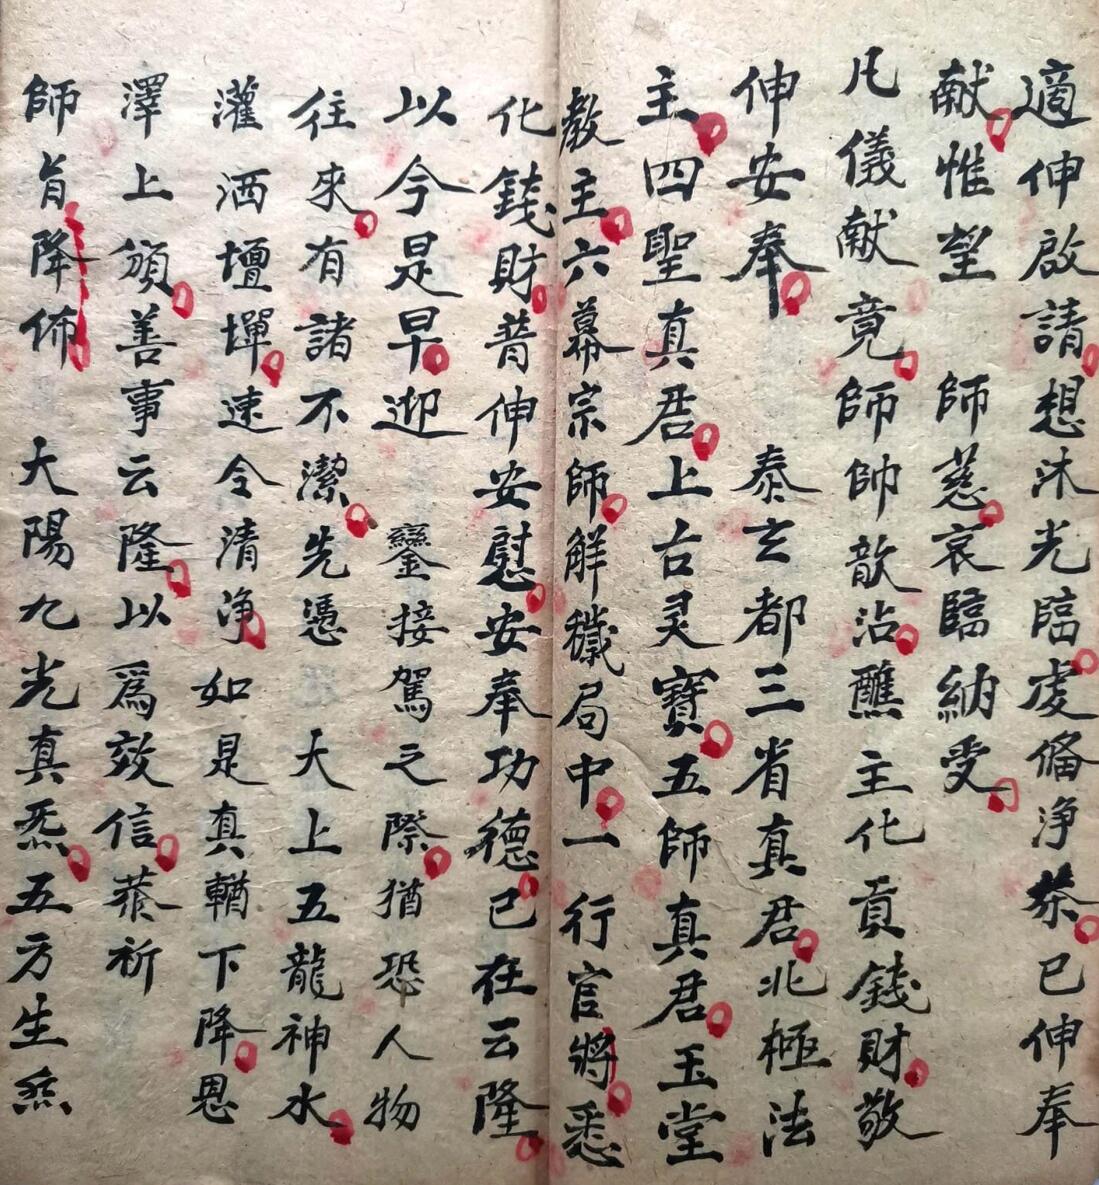 適伸啟請想沐光臨虔俻净茶已伸奉
献惟望　師慈哀臨納受
凡儀献竟師帥歆沾醮主化貢錢財敬
伸安奉　泰玄都三省真君北極法
主四聖真君上古灵寶五師真君玉堂
教主六幕宗師解穢局中一行官將悉
化錢財普伸安慰安奉功德已在云隆
以今是早迎　鑾接駕之際猶恐人物
往來有諸不潔先憑　天上五龍神水
灌洒壇墠速令清净如是真輶下降恩
澤上頒善事云隆以爲效信恭祈
師旨降佈　大陽九光真炁五方生炁